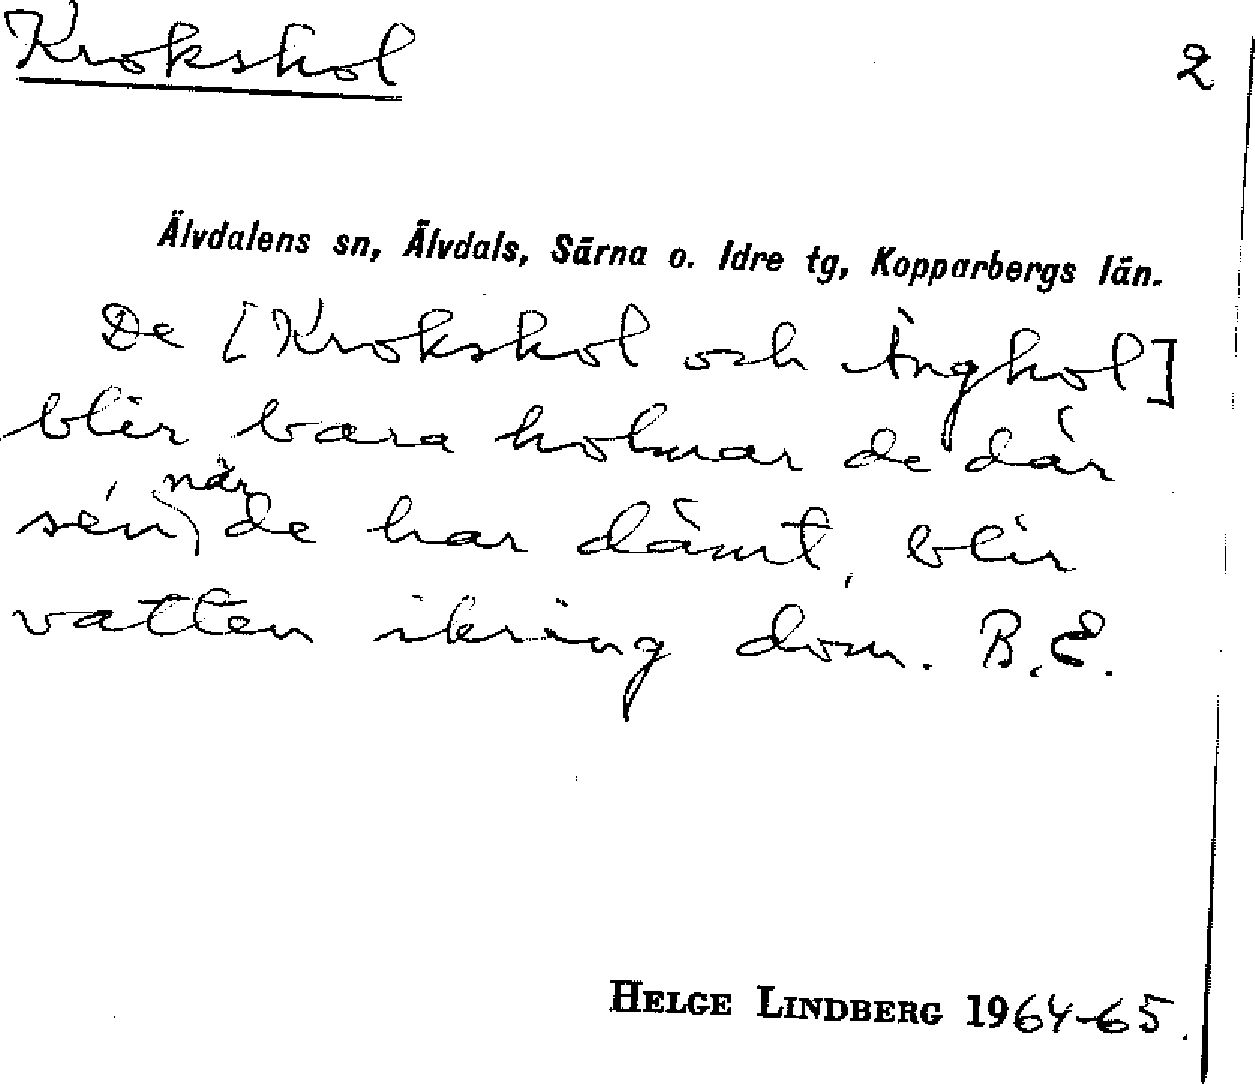 Krokshol 2
Älvdalens sn, Älvdals, Särna o. Idre tg, Kopparbergs län.
De [Krokshol och Änghol]
blir bara holmar de där
sén, när de har dämt, blir
vatten ikring dom. B.E.
HELGE LINDBERG 1964-65.